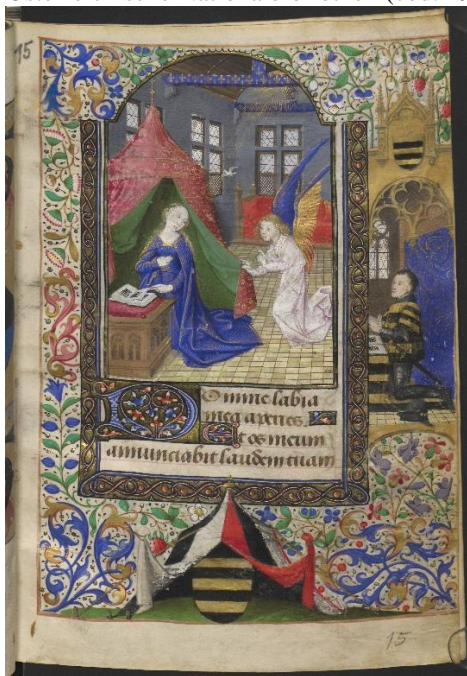 15
Domine labia
mea aperies.
Et os meum
annunciabit laudem tuam
15